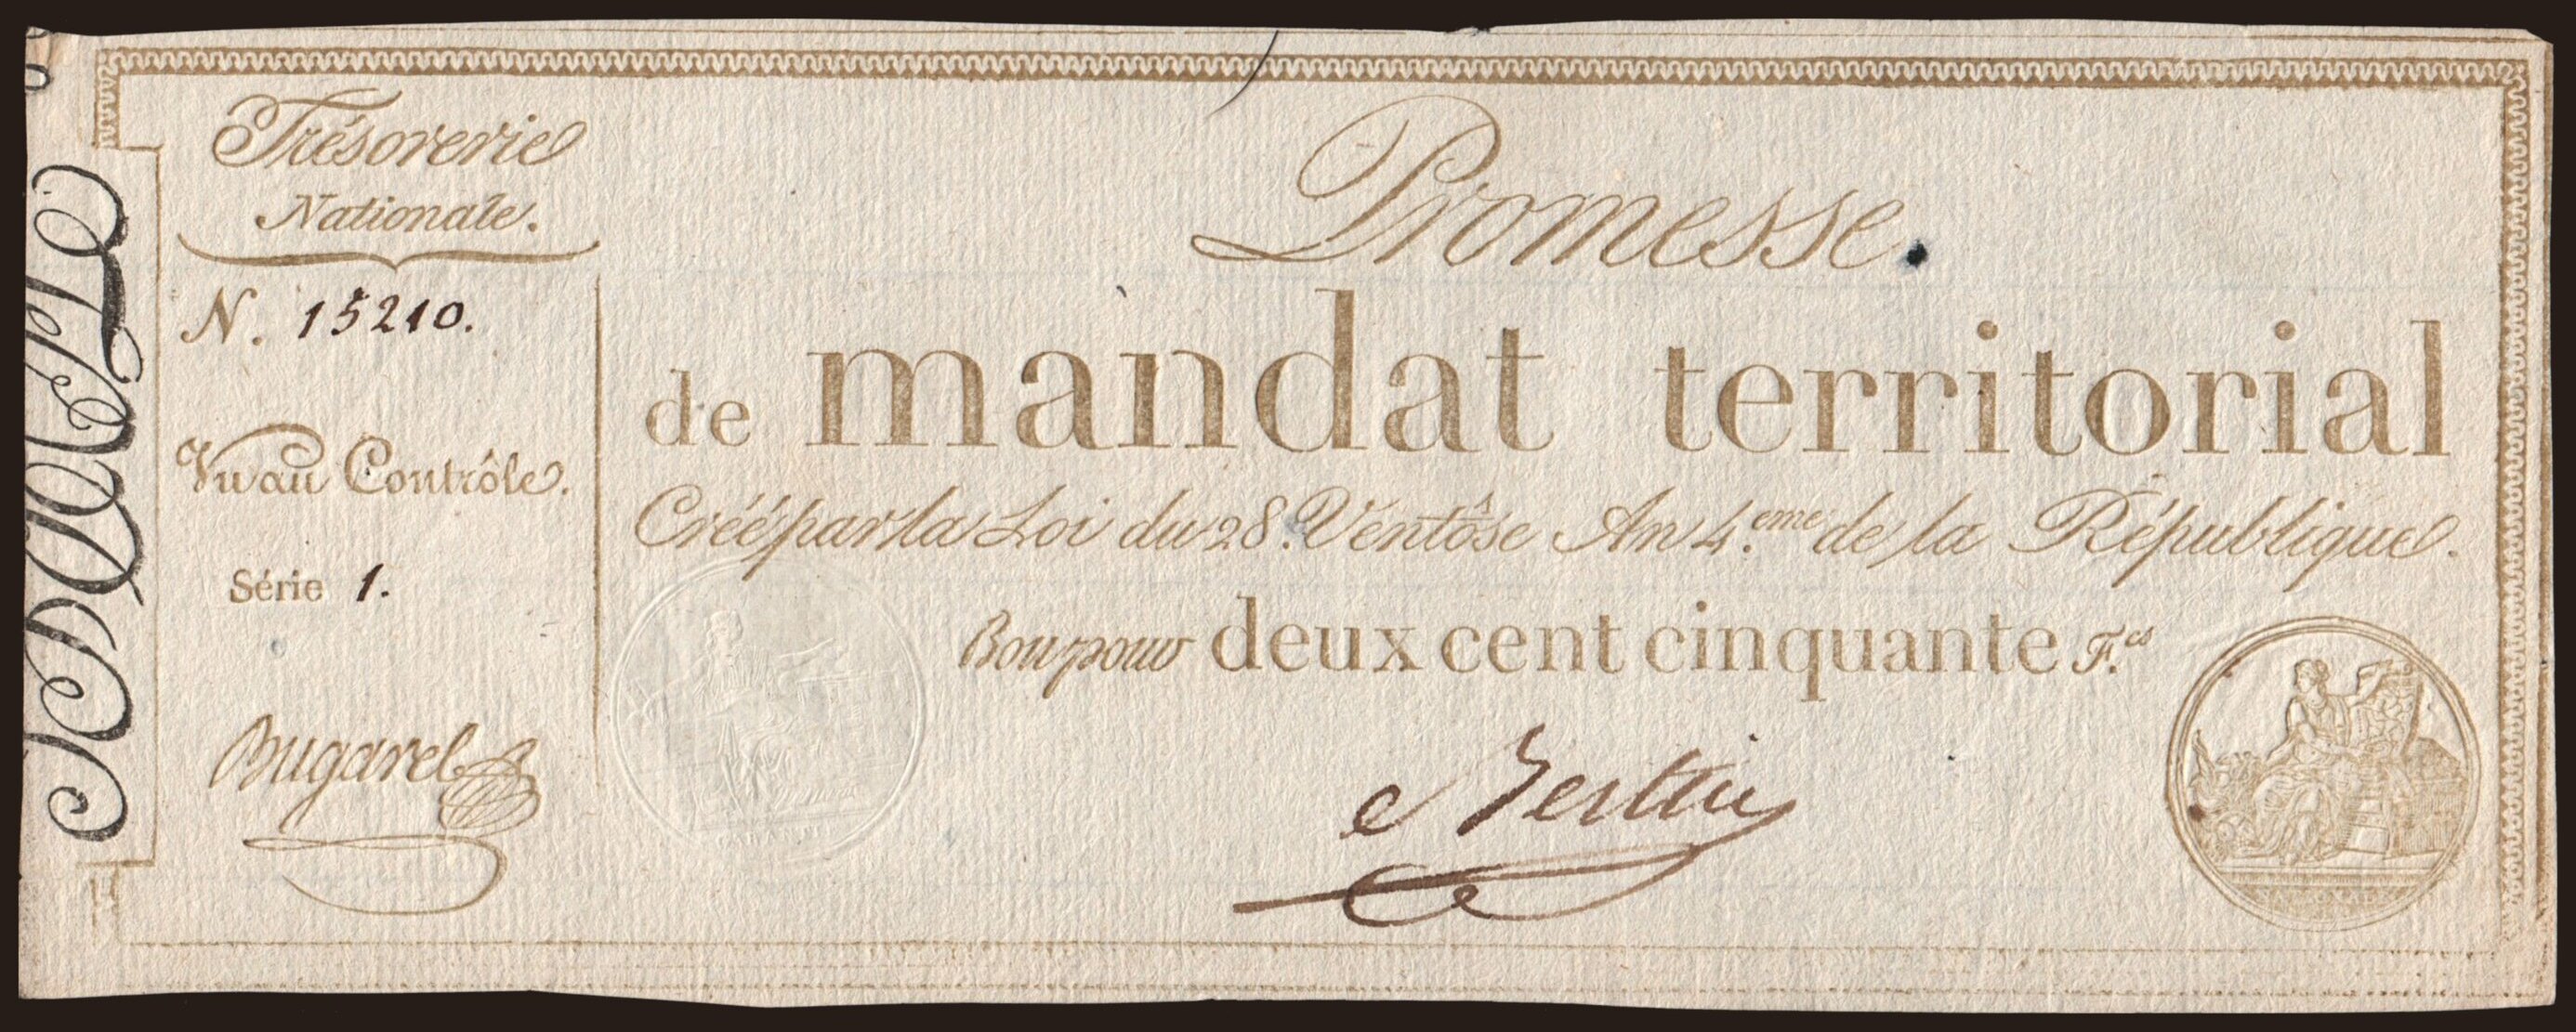 Trésorerie
Nationale.
N. 15210.
Vu au Contrôle.
Série 1.
Bugarel
Promesse.
de mandat territorial
Créé par la Loi du 28. Ventôse An 4.eme de la République.
Bon pour deux cent cinquante F.cs